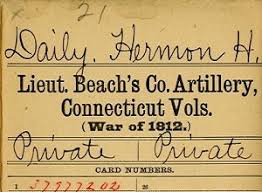 x 21
Daily, Hermon H.
Lieut. Beach's Co. Artillery,
Connecticut Vols.
(War of 1812.)
Private Private
CARD NUMBERS.
1 37777202 26